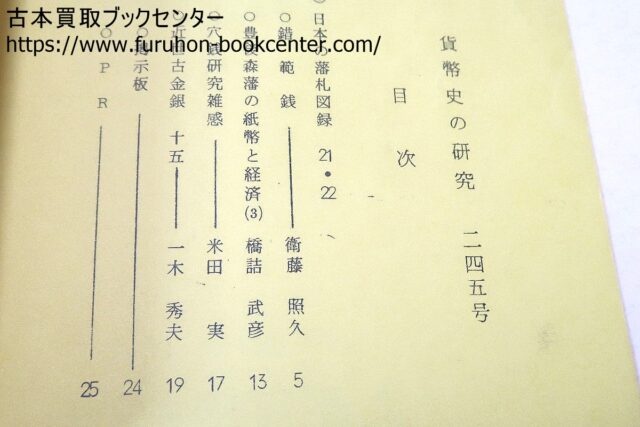 古本買取ブックセンター
https://www.furuhon-bookcenter.com/
貨幣史の研究 二四五号
目次
○日本の藩札図録 21・22
○錯範銭 衛藤照久 5
○豊後森藩の紙幣と経済(3) 橋詰武彦 13
○穴銭研究雑感 米田実 17
○近世古金銀 十五 一木秀夫 19
○掲示板 24
○PR 25